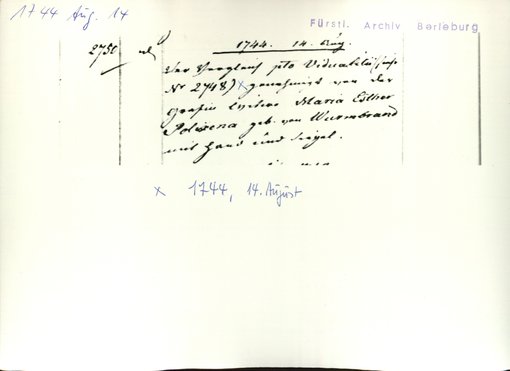 1744 Aug. 14
Fürstl. Archiv Berleburg
2750
1744. 14. Aug.
Der Vergleich pto Vidualitii (sub
Nr 2748) x genehmigt von der
Gräfin Maria Esther
Polixena geb. von Wurmbrand
mit Hand und Siegel.
x 1744, 14. August